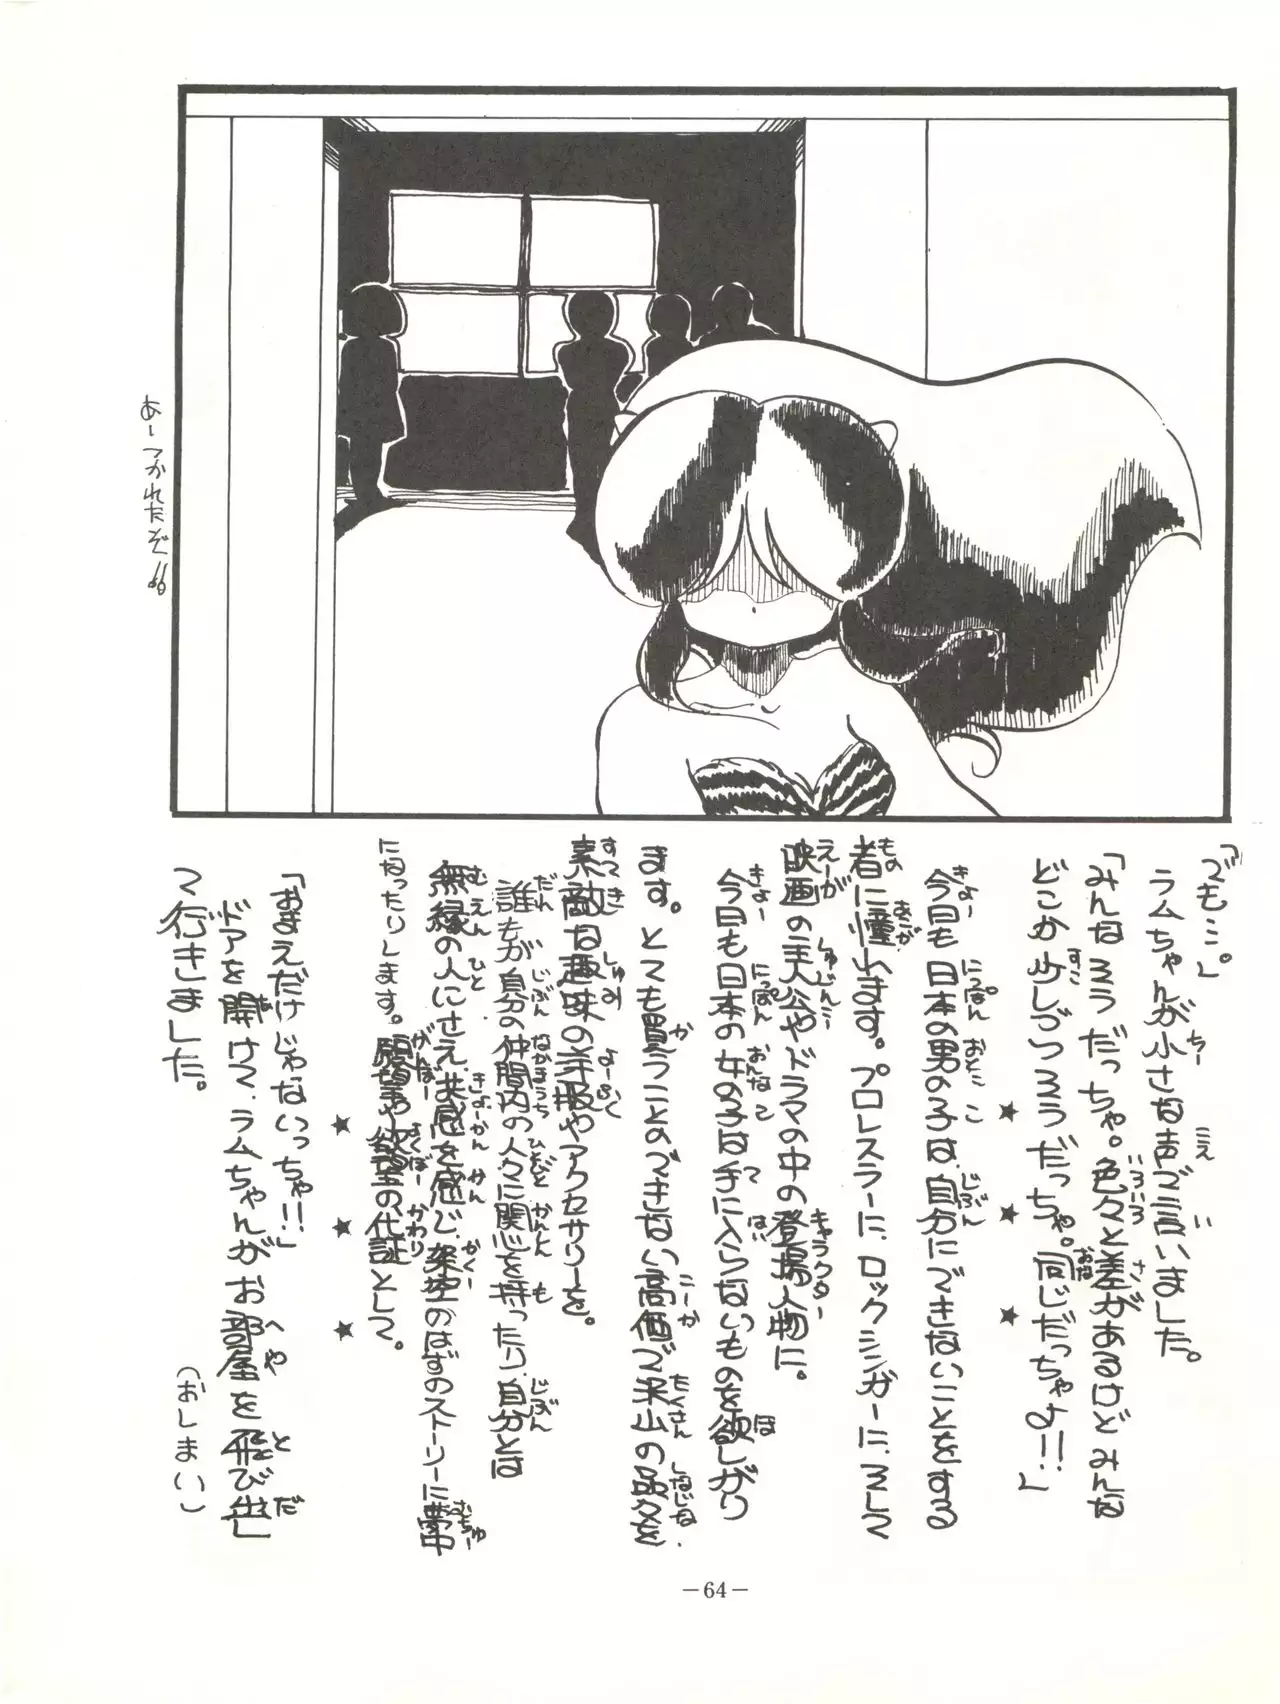 「でもこ。」
ラムちゃんが小さな声で言いました。
「みんなそうだっちゃ。色々と差があるけどみんな
どこか少しづつそうだっちゃ。同じだっちゃよ!!」
★ ★ ★
今日も日本の男の子は、自分にできないことをする
者に憧れます。プロレスラーに、ロックシンガーに、そして
映画の主人公やドラマの中の登場人物に。
今日も日本の女の子は手に入らないものを欲しがり
ます。とても買うことのできない高価で沢山の品々を
素敵な趣味の洋服やアクセサリーを。
誰もが自分の仲間内の人々に関心を持ったり、自分とは
無縁の人にさえ、共感を感じ、架空のはずのストーリーに夢中
になったりします。願望や欲望の代証として。
★ ★ ★
「おまえだけじゃないっちゃ!!」
ドアを開けて、ラムちゃんがお部屋を飛び出し
て行きました。
(おしまい)
あーつかれたぞ
—64—